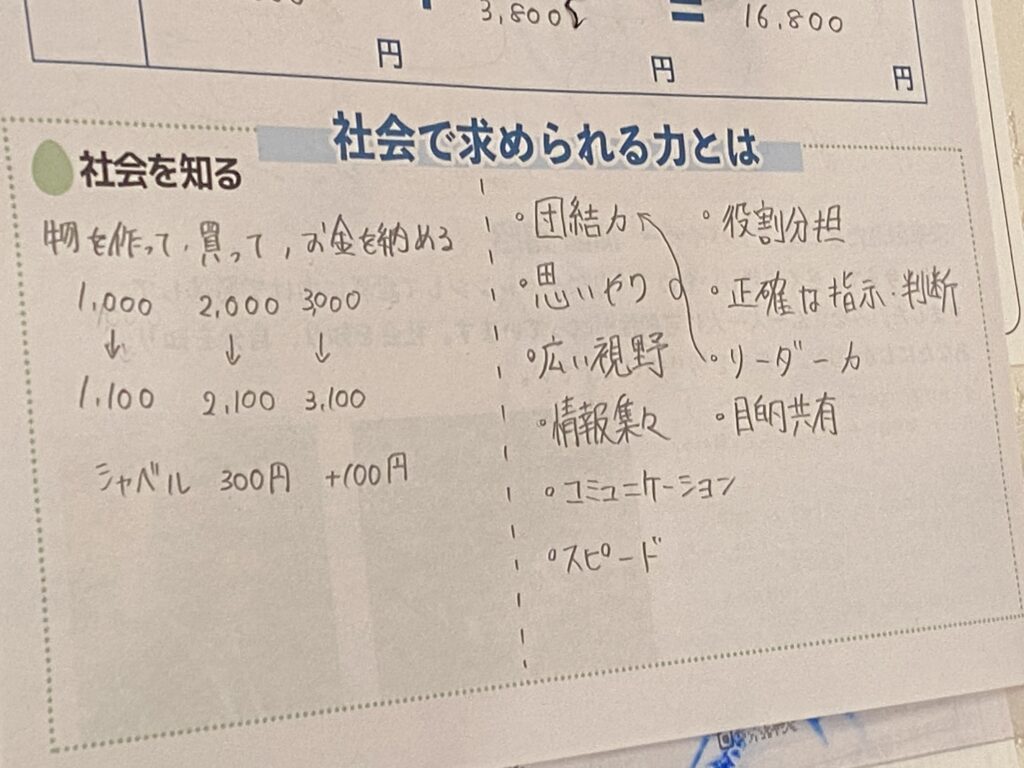 3,800 = 16,800
円 円 円
社会で求められる力とは
社会を知る
物を作って、買って、お金を納める
1,000 2,000 3000
↓ ↓ ↓
1,100 2,100 3,100
シャベル 300円 +100円
・団結力
・思いやり
・広い視野
・情報集々
・コミュニケーション
・スピード
・役割分担
・正確な指示・判断
・リーダー力
・目的共有